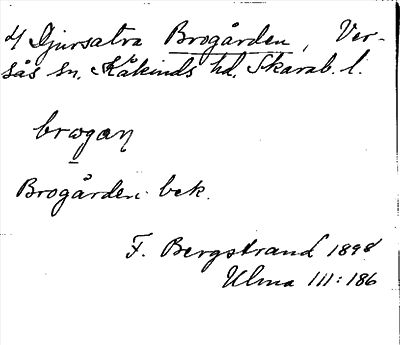 4/ Djursatra Brogården, Ver-
sås sn, Kåkinds hd, Skarab. l.
brωgæŋ
Brogården bek.
F. Bergstrand 1898
Ulma III: 186